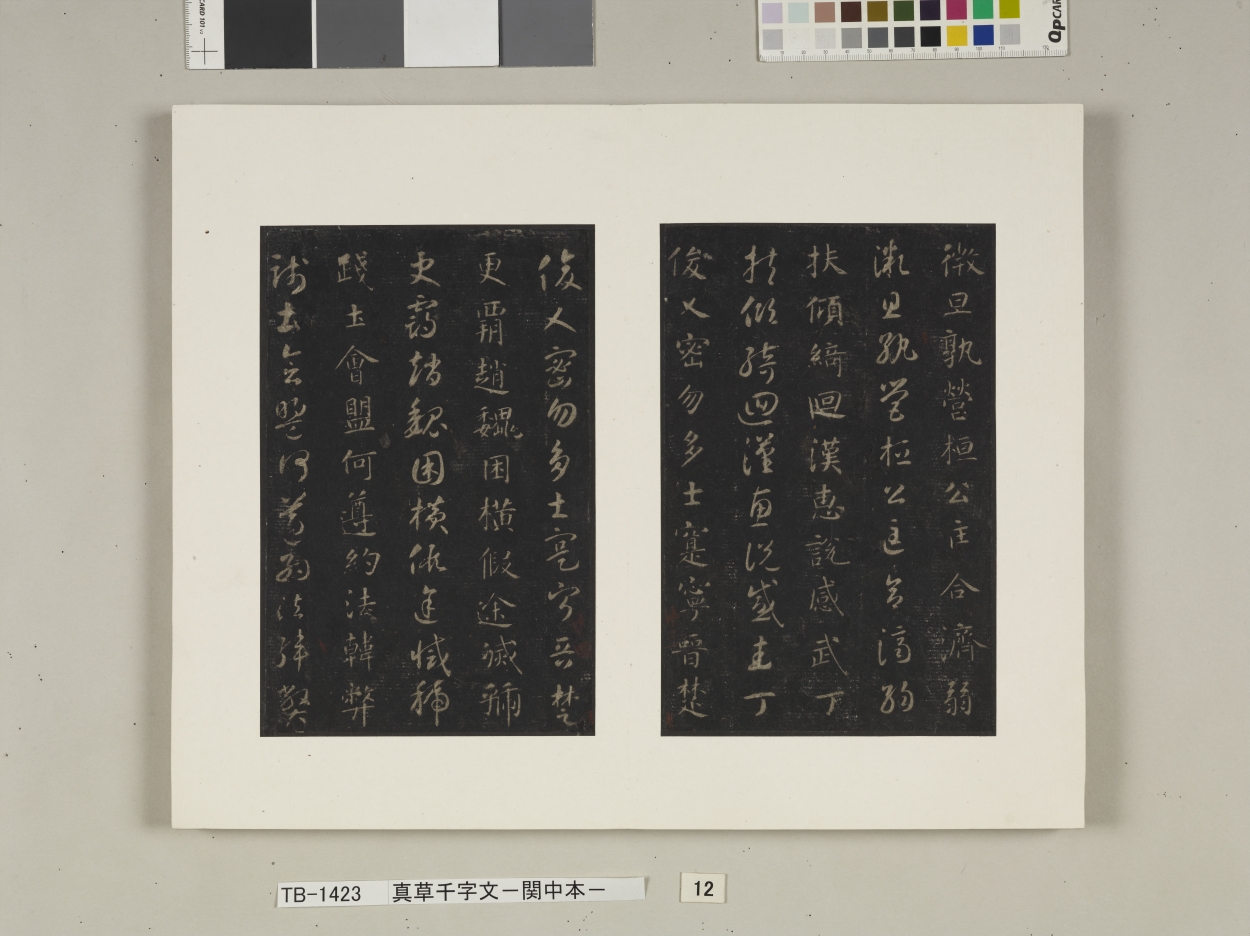 微旦孰營桓公匡合濟弱
微旦孰營桓公匡合濟弱
扶傾綺迴漢惠說感武丁
扶傾綺迴漢惠說感武丁
俊乂密勿多士寔寧晉楚
俊乂密勿多士寔寧晉楚
更霸趙魏困橫假途滅虢
更霸趙魏困橫假途滅虢
踐土會盟何遵約法韓弊
踐土會盟何遵約法韓弊
TB-1423 真草千字文－関中本－
12
CARD 101
QPCAR